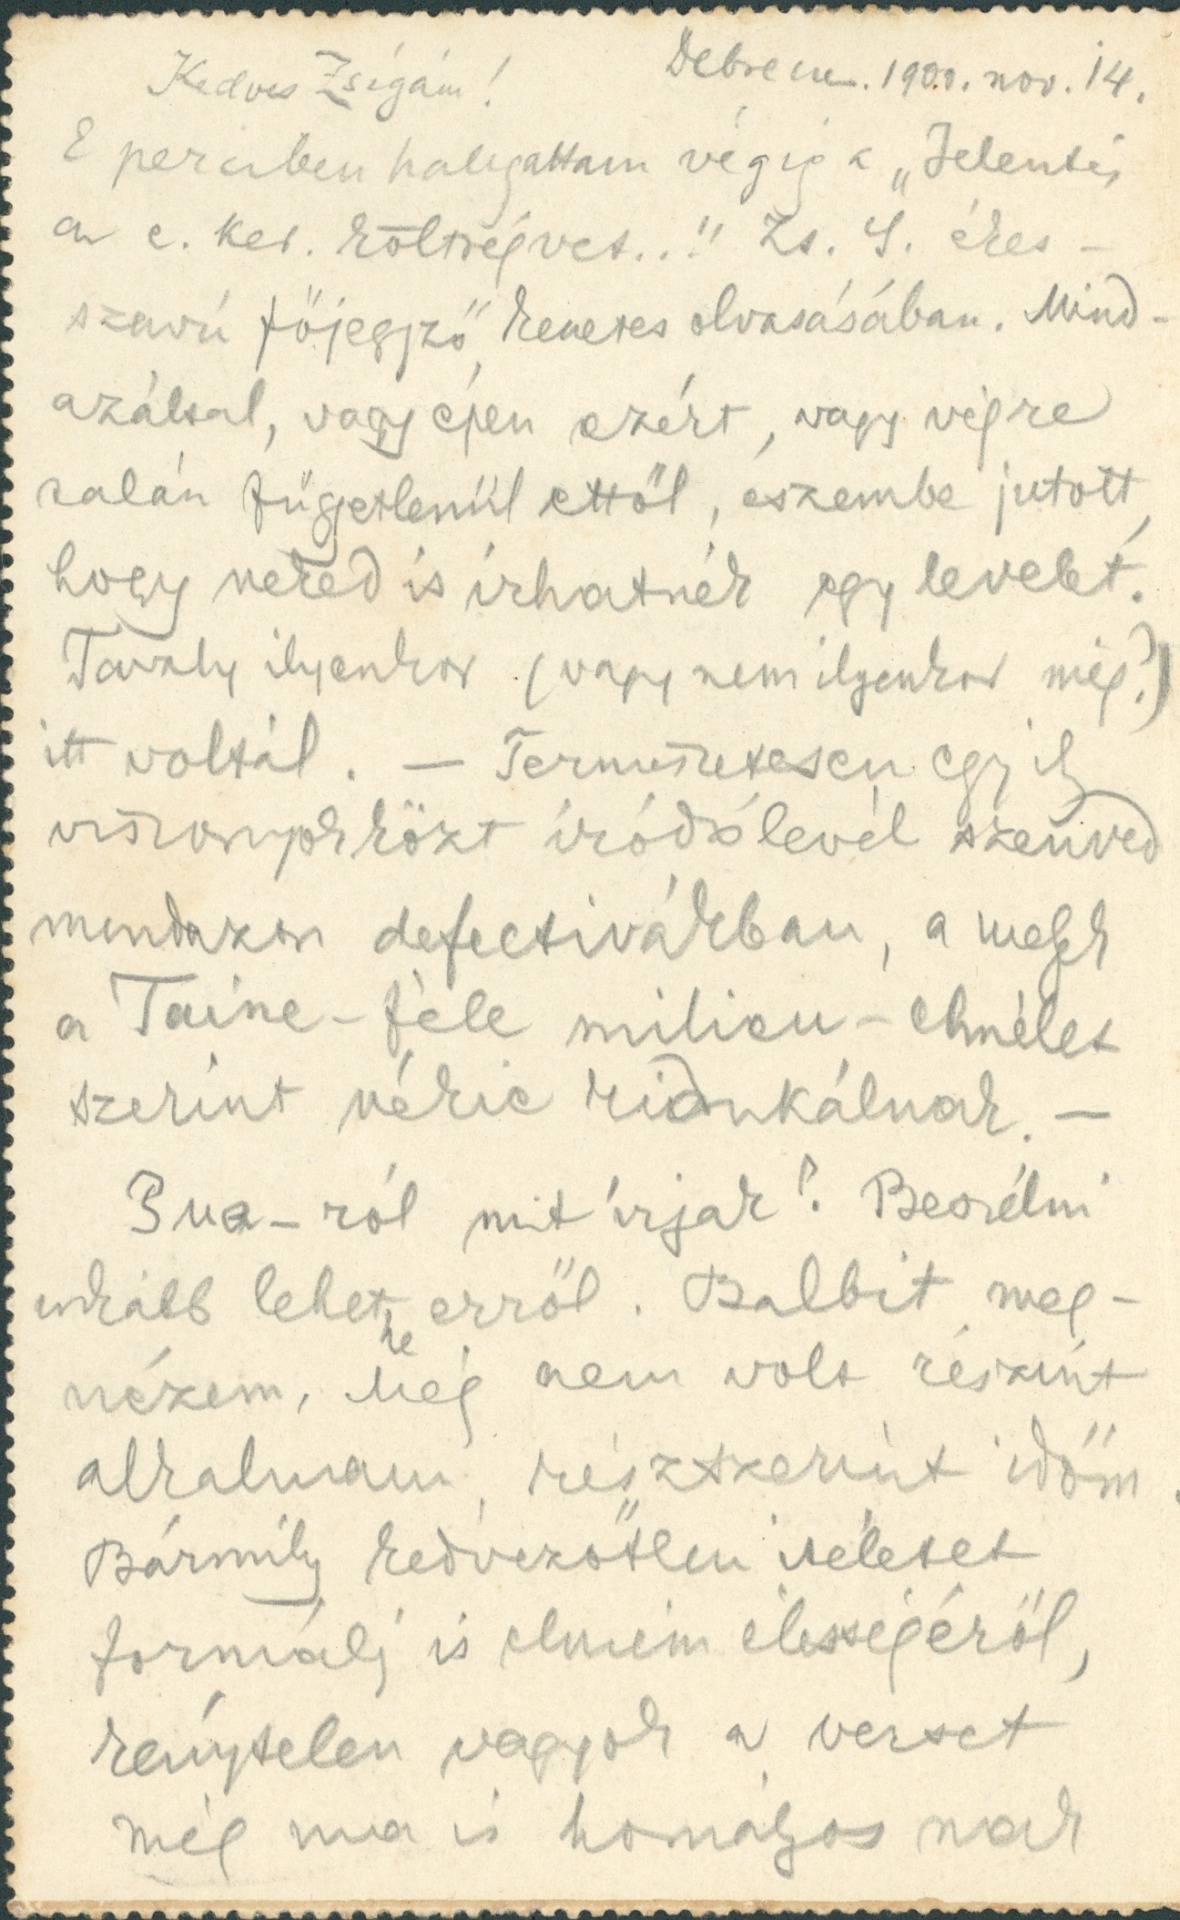 Debrecen. 1900. nov. 14.
Kedves Zsigám!
E percben hallgattam végig a „Jelentés
a c. ker. költségvet..!" Zs. S. éres-
szavú főjegyző kenetes olvasásában. Mind-
azáltal, vagy épen ezért, vagy végre
talán függetlenül ettől, eszembe jutott,
hogy neked is írhatnék egy levelet.
Tavaly ilyenkor (vagy nem ilyenkor még?)
itt voltál. — Természetesen egy ily
viszonyok közt íródó levél szenved
mindazon defectivákban, a melyek
a Taine-féle milieu-elmélet
szerint
mit írjak? Beszélni
inkább lehetne erről. Balbit meg-
nézem. Még nem volt részint
alkalmam, részszerint időm.
Bármily kedvezőtlen itéletet
formálj is elmém élességéről,
kénytelen vagyok a verset
még ma is homályosnak